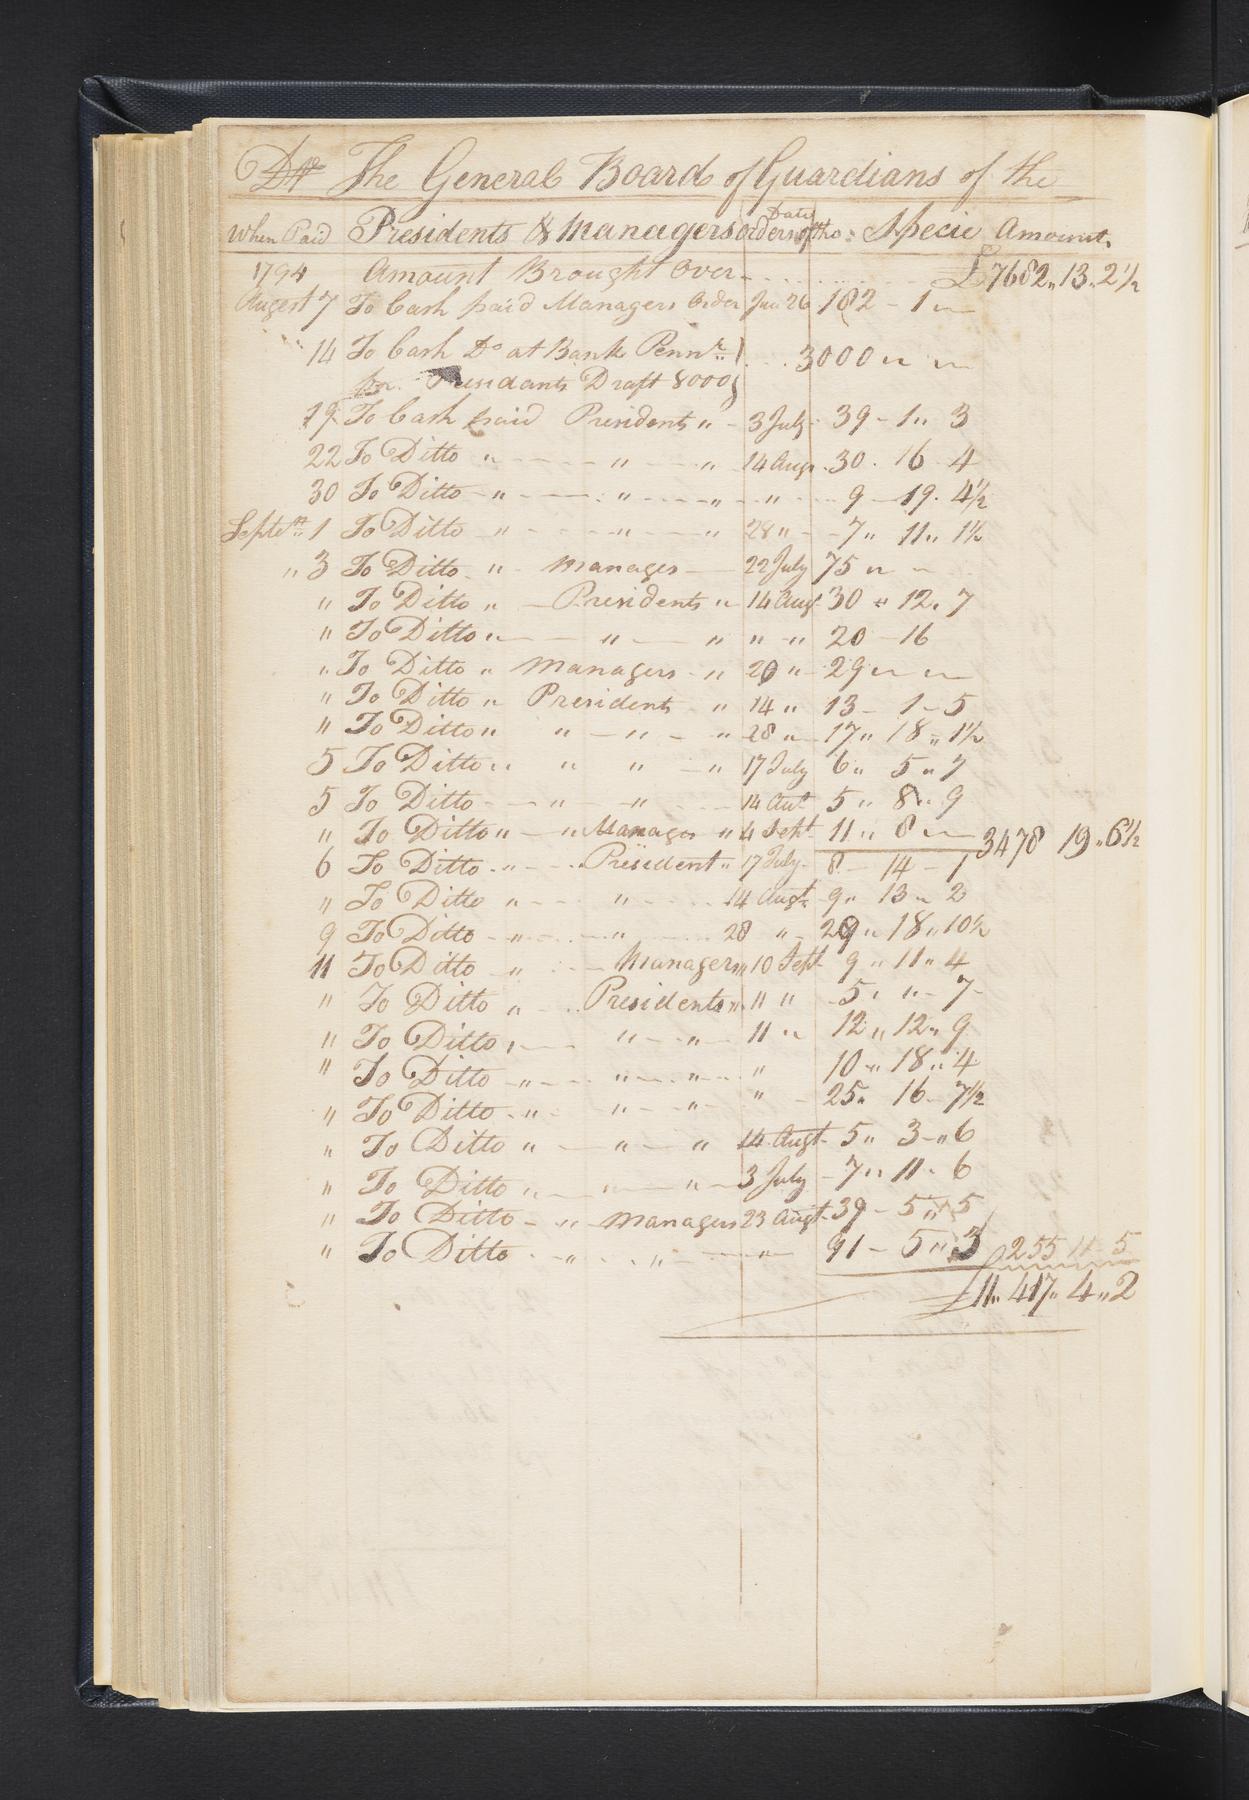 Dr The General Board of Guardians of the
When Paid Presidents & Managers orders Date of tho: Specie Amount
1794 Amount Brought Over - - - £7682,,13,,2½
August 7 To Cash paid Managers Order Jun 26 182 - 1 ,,
14 To Cash Do at Bank Pennr. } 3000 ,, ,,
for Presidants Draft 8000 }
19 To Cash paid Presidents ,, - 3 July - 39 - 1 ,, 3
22 To Ditto ,, - - - ,, - - ,, 14 Augt 30 . 16 . 4
30 To Ditto - ,, - - - ,, - - ,, - ,, - 9 - 19 . 4½
Septem. 1 To Ditto - ,, - - ,, - - ,, 28 ,, - 7 ,, 11 ,, 1½
,, 3 To Ditto ,, - Manages - 22 July 75 ,, -
,, To Ditto ,, - Presidents ,, - 14 Augt 30 ,, 12 ,, 7
,, To Ditto ,, - - ,, - ,, ,, ,, 20 - 16
,, To Ditto ,, Managers - ,, 20 ,, - 29 ,, ,,
,, To Ditto ,, President - ,, 14 ,, 13 - 1 - 5
,, To Ditto ,, ,, - ,, - ,, 28 ,, - 17 ,, 18 ,, 1½
5 To Ditto ,, ,, ,, - ,, 17 July 6 ,, 5 ,, 7
5 To Ditto - - ,, - ,, - - 14 Aut 5 ,, 8 ,, 9
,, To Ditto ,, - ,, Manages ,, 4 Sept - 11 ,, 8 ,, - 3478 19 ,, 6½
6 To Ditto - ,, - - President ,, 17 July - 8 - 14 - 1
,, To Ditto ,, - - ,, - - - 14 Augt. 9 ,, 13 ,, 2
9 To Ditto - ,, - - ,, - - 28 ,, - 29 ,, 18 ,, 10½
11 To Ditto ,, - - Managers ,, 10 Sept 9 ,, 11 ,, 4
,, To Ditto ,, - - Presidents ,, 11 ,, - 5 ,, ,, - 7 -
,, To Ditto , - - ,, - ,, - 11 ,, 12 ,, 12 ,, 9
,, To Ditto - ,, - - ,, - ,, - - ,, 10 ,, 18 ,, 4
,, To Ditto - ,, - ,, - ,, - ,, - 25 ,, 16 - 7½
,, To Ditto ,, - ,, - ,, 14 Augt - 5 ,, 3 - ,, 6
,, To Ditto ,, - - ,, - ,, - 3 July - 7 ,, 11 - 6
,, To Ditto - ,, - Managers 23 Augt - 39 - 5 ,, 5
,, To Ditto - ,, - ,, - - ,, - 91 - 5 ,, 3 255 11 - 5
£11,,417,,4,,2